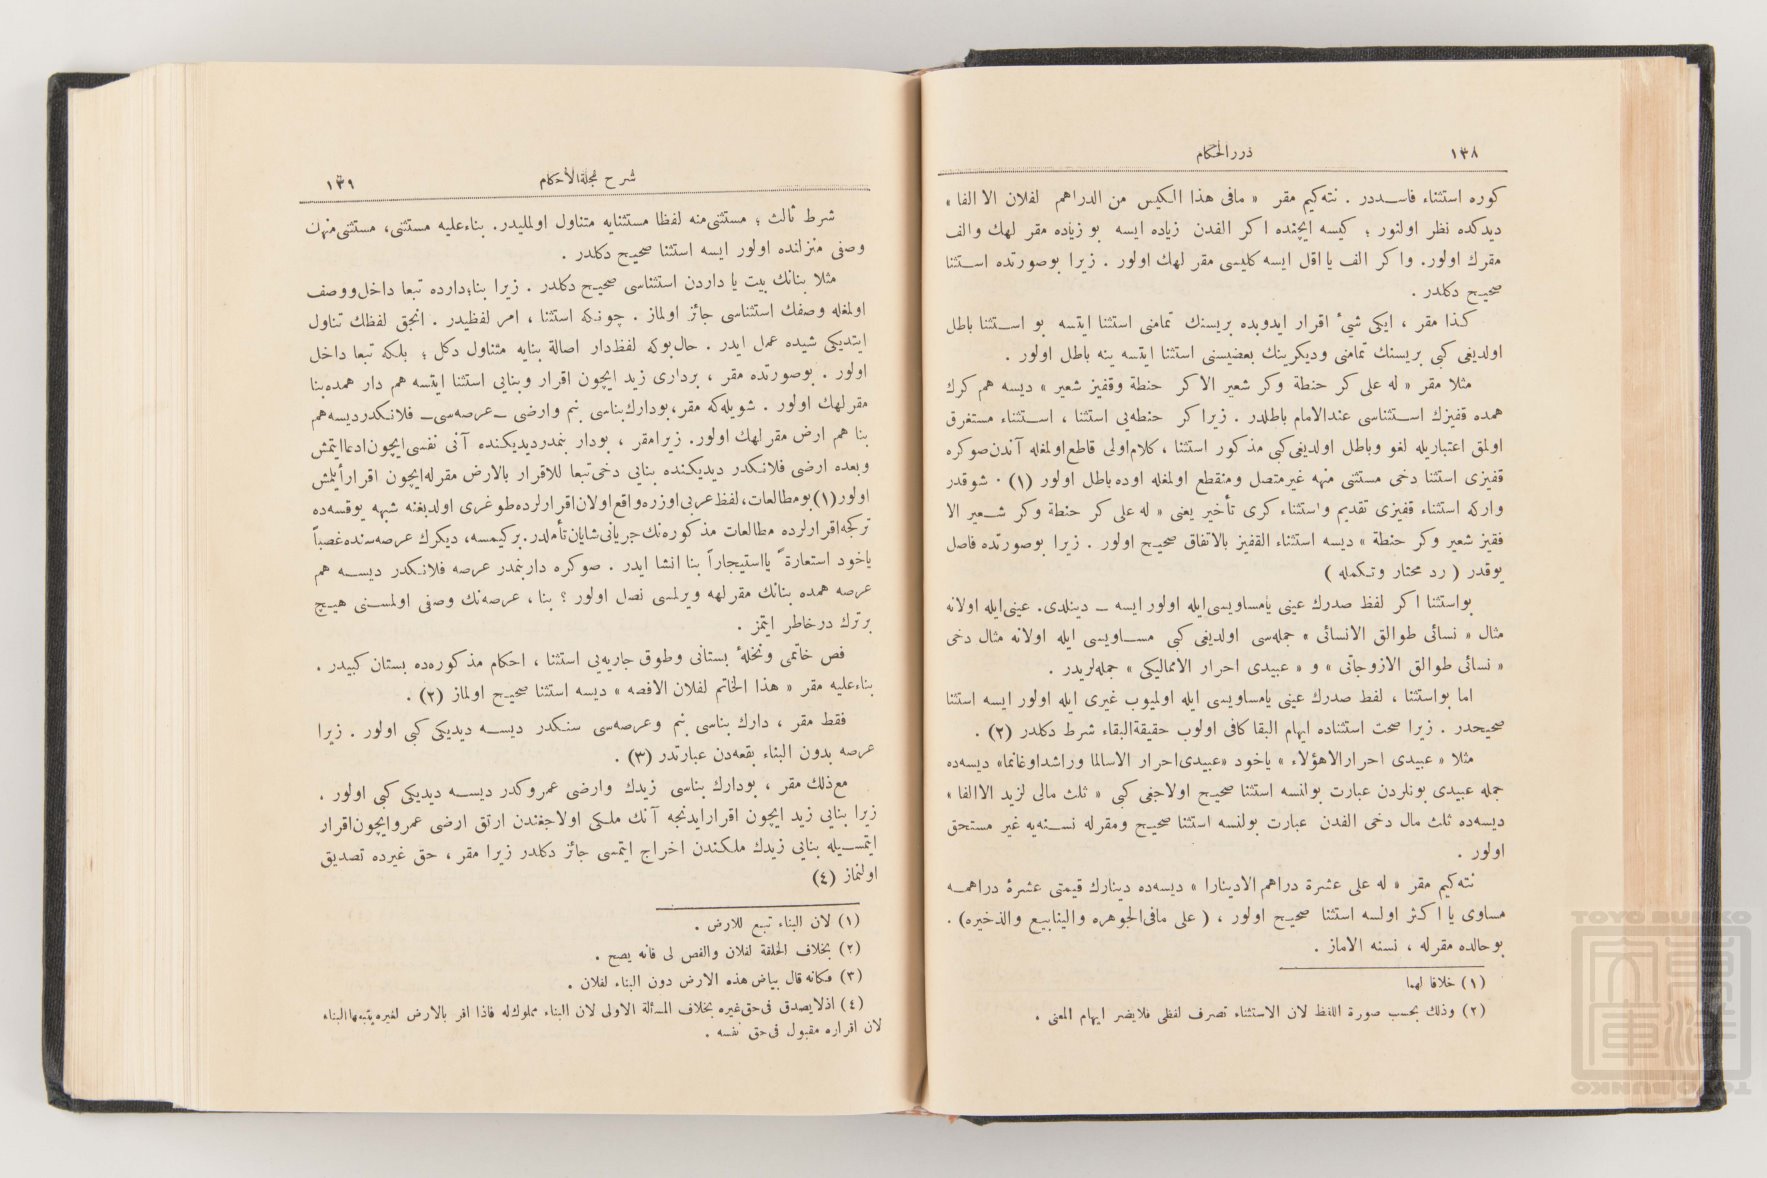 ١٣٨
درر الحكام
كوره استثناء فاسددر . نته‌كيم مقر « مافى هذا الكيس من الدراهم لفلان الا الفا »
ديدكده نظر اولنور ؛ كيسه ايچنده اكر الفدن زياده ايسه بو زياده مقر لهك والف
مقرك اولور. واكر الف يا اقل ايسه كليسى مقر لهك اولور . زيرا بوصورتده استثنا
صحيح دكلدر .
كذا مقر ، ايكى شىء اقرار ايدوبده بريسنك تمامنى استثنا ايتسه بو استثنا باطل
اولديغى كبى بريسنك تمامنى وديكرينك بعضيسنى استثنا ايتسه ينه باطل اولور .
مثلا مقر « له على كر حنطة وكر شعير الا كر حنطة وقفيز شعير » ديسه هم كرك
همده قفيزك استثناسى عندالامام باطلدر . زيرا كر حنطه‌يى استثنا ، استثناء مستغرق
اولمق اعتباريله لغو وباطل اولديغى كبى مذكور استثنا ، كلام اولى قاطع اولمغله آندن صوكره
قفيزى استثنا دخى مستثنى منهه غير متصل ومنقطع اولمغله اوده باطل اولور (١) . شوقدر
واركه استثناء قفيزى تقديم واستثناء كرى تأخير يعنى « له على كر حنطة وكر شعير الا
قفيز شعير وكر حنطة » ديسه استثناء القفيز بالاتفاق صحيح اولور . زيرا بوصورتده فاصل
يوقدر ( رد محتار وتكمله )
بواستثنا اكر لفظ صدرك عينى يامساويسى ايله اولور ايسه ــ دينلدى. عينى ايله اولانه
مثال « نسائى طوالق الانسائى » جمله‌سى اولديغى كبى مساويسى ايله اولانه مثال دخى
« نسائى طوالق الازوجاتى » و « عبيدى احرار الامماليكى » جمله‌لريدر .
اما بواستثنا ، لفظ صدرك عينى يامساويسى ايله اولميوب غيرى ايله اولور ايسه استثنا
صحيحدر . زيرا صحت استثناده ايهام البقا كافى اولوب حقيقة‌البقاء شرط دكلدر (٢) .
مثلا « عبيدى احرار الاهؤلاء » ياخود «عبيدى احرار الاسالما وراشدا وغانما» ديسه‌ده
جمله عبيدى بونلردن عبارت بولنسه استثنا صحيح اولاجغى كبى « ثلث مالى لزيد الاالفا »
ديسه‌ده ثلث مال دخى الفدن عبارت بولنسه استثنا صحيح ومقرله نسنه‌يه غير مستحق
اولور .
نته‌كيم مقر « له على عشرة دراهم الادينارا » ديسه‌ده دينارك قيمتى عشرۀ دراهمه
مساوى يا اكثر اولسه استثنا صحيح اولور ، ( على مافى‌الجوهره والينابيع والذخيره) .
بوحالده مقرله ، نسنه الاماز .
(١) خلافا لهما
(٢) وذلك بحسب صورة اللفظ لان الاستثناء تصرف لفظى فلايضر ايهام المعنى .
شرح مجلة‌الأحكام
١٣٩
شرط ثالث ؛ مستثنى‌منه لفظا مستثنايه متناول اولمليدر. بناءعليه مستثنى، مستثنى‌منهك
وصفى منزلنده اولور ايسه استثنا صحيح دكلدر .
مثلا بنانك بيت يا داردن استثناسى صحيح دكلدر . زيرا بناء دارده تبعا داخل ووصف
اولمغله وصفك استثناسى جائز اولماز . چونكه استثنا ، امر لفظيدر . انجق لفظك تناول
ايتديكى شيده عمل ايدر . حال بوكه لفظ دار اصالة بنايه متناول دكل ؛ بلكه تبعا داخل
اولور . بوصورتده مقر ، بردارى زيد ايچون اقرار وبنايى استثنا ايتسه هم دار همده بنا
مقر لهك اولور . شويله‌كه مقر، بودارك بناسى بنم وارضى ــ عرصه‌سى ــ فلانكدر ديسه هم
بنا هم ارض مقر لهك اولور. زيرا مقر ، بودار بنمدر ديديكنده آنى نفسى ايچون ادعا ايتمش
وبعده ارضى فلانكدر ديديكنده بنايى دخى تبعا للاقرار بالارض مقرله ايچون اقرار أيلمش
اولور (١) بو مطالعات، لفظ عربى اوزره واقع اولان اقرارلرده طوغرى اولديغنه شبهه يوقسه‌ده
تركجه اقرارلرده مطالعات مذكوره‌نك جريانى شايان تأملدر. بركيمسه، ديكرك عرصه‌سنده غصباً
ياخود استعارةً يا استيجاراً بنا انشا ايدر . صوكره دار بنمدر عرصه فلانكدر ديسه هم
عرصه همده بنانك مقر لهه ويرلمسى نصل اولور ؟ بنا ، عرصه‌نك وصفى اولمسنى هيچ
بر ترك درخاطر ايتمز .
فص خاتمى ونخلۀ بستانى وطوق جاريه‌يى استثنا ، احكام مذكوره‌ده بستان كبيدر .
بناءعليه مقر « هذا الخاتم لفلان الافصه » ديسه استثنا صحيح اولماز (٢) .
فقط مقر ، دارك بناسى بنم وعرصه‌سى سنكدر ديسه ديديكى كبى اولور . زيرا
عرصه بدون البناء بقعه‌دن عبارتدر (٣) .
مع‌ذلك مقر ، بودارك بناسى زيدك وارضى عمروكدر ديسه ديديكى كبى اولور .
زيرا بنايى زيد ايچون اقرار ايدنجه آنك ملكى اولاجغندن ارتق ارضى عمرو ايچون اقرار
ايتمسيله بنايى زيدك ملكندن اخراج ايتمسى جائز دكلدر زيرا مقر ، حق غيرده تصديق
اولنماز (٤)
(١) لان البناء تبع للارض .
(٢) بخلاف الحلقة لفلان والفص لى فانه يصح .
(٣) فكانه قال بياض هذه الارض دون البناء لفلان .
(٤) اذلايصدق فى‌حق غيره بخلاف المسألة الاولى لان البناء مملوك له فاذا اقر بالارض لغيره يتبعها البناء
لان اقراره مقبول فى‌حق نفسه .
TOYO BUNKO
TOYO BUNKO